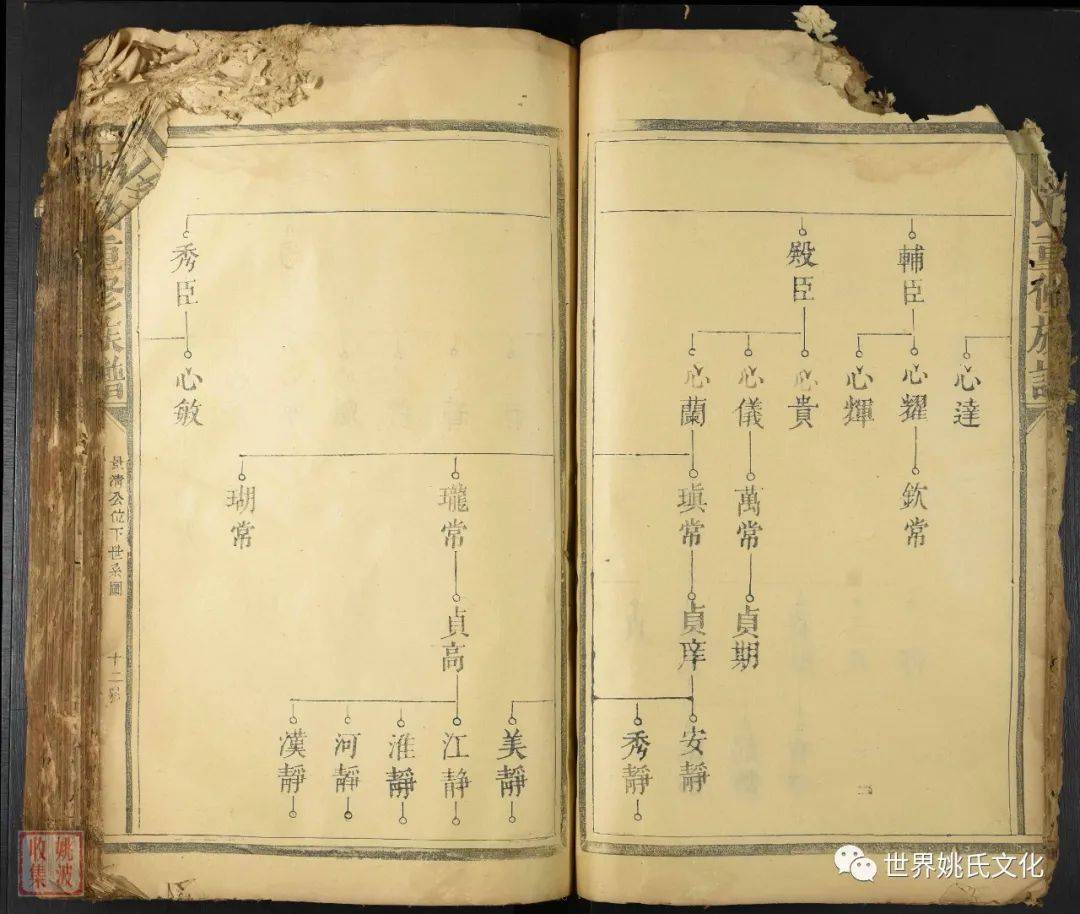 重修族譜
輔臣
殿臣
心達
心耀
心輝
心貴
心儀
心蘭
欽常
萬常
瑱常
貞期
貞庠
安靜
秀靜
秀臣
心敏
瓏常
瑚常
貞高
美靜
江静
淮靜
河靜
漢靜
重修族譜
公位下世系圖
十二
姚波
收集
世界姚氏文化